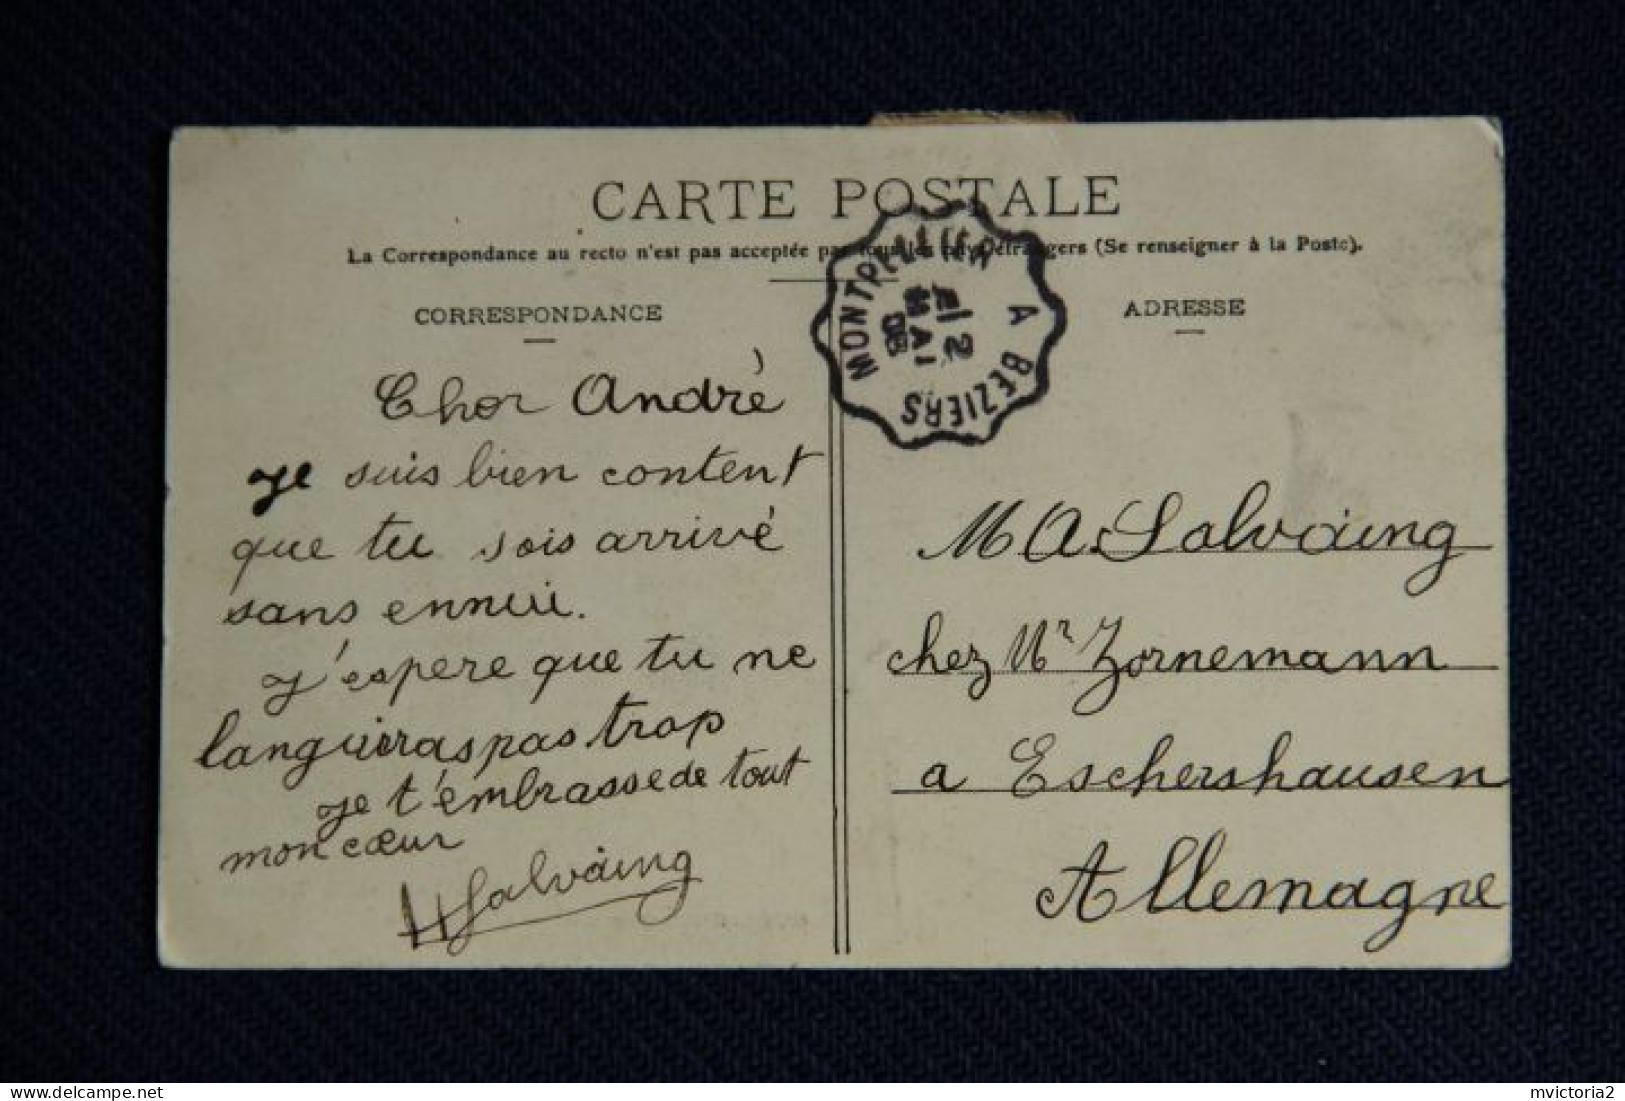 CARTE POSTALE
La Correspondance au recto n'est pas acceptée par tous les pays étrangers (Se renseigner à la Poste).
CORRESPONDANCE
Cher André
Je suis bien content
que tu sois arrivé
sans ennui.
J'espère que tu ne
languiras pas trop
je t'embrasse de tout
mon cœur
H Salvaing
MONTPELLIER A BEZIERS
2
MAI
08
ADRESSE
M A. Salvaing
chez Mr Zornemann
a Eschershausen
Allemagne
mvictoria2